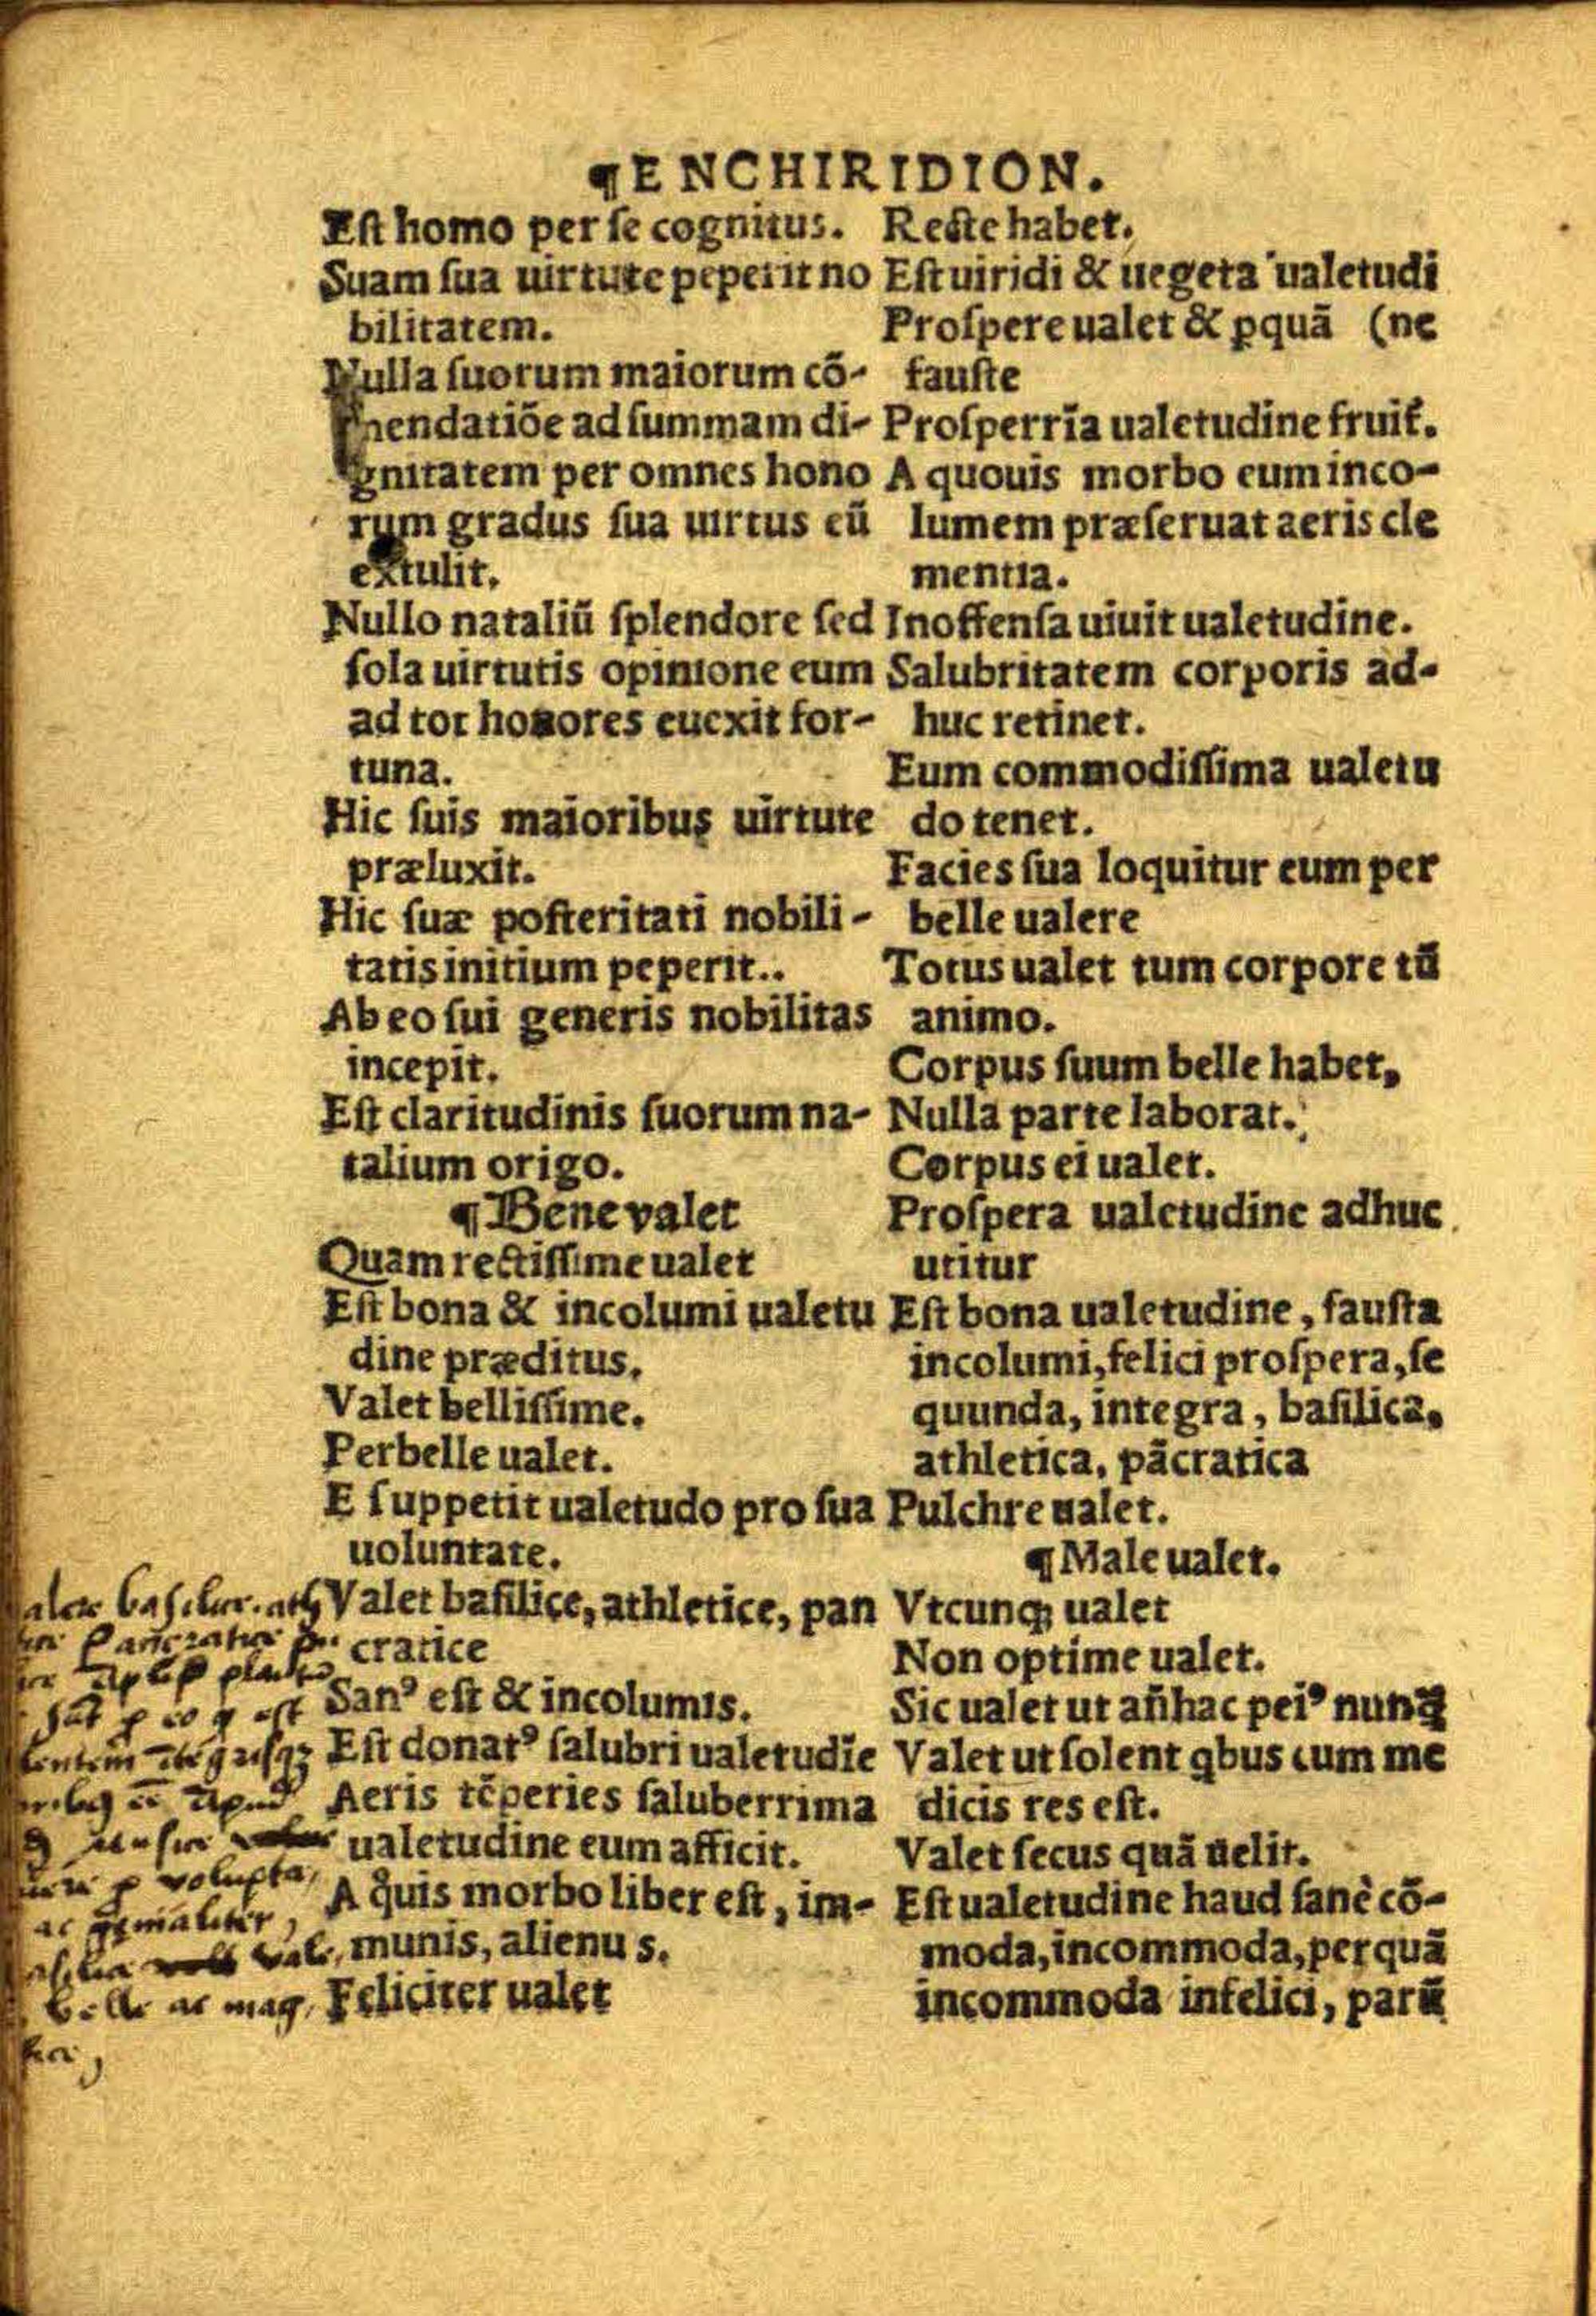 ¶ENCHIRIDION.
Eſt homo per ſe cognitus.
Suam ſua uirtute peperit no
bilitatem.
Nulla ſuorum maiorum cō-
mendatiōe ad ſummam di-
gnitatem per omnes hono
rum gradus ſua uirtus eū
extulit.
Nullo nataliū ſplendore ſed
ſola uirtutis opinione eum
ad tot honores euexit for-
tuna.
Hic ſuis maioribus uirtute
præluxit.
Hic ſuæ poſteritati nobili-
tatis initium peperit..
Ab eo ſui generis nobilitas
incepit.
Eſt claritudinis ſuorum na-
talium origo.
¶Bene valet
Quam rectiſſime ualet
Eſt bona & incolumi ualetu
dine præditus.
Valet belliſſime.
Perbelle ualet.
E ſuppetit ualetudo pro ſua
uoluntate.
Valet baſilice, athletice, pan
cratice
Sanꝰ eſt & incolumis.
Eſt donatꝰ ſalubri ualetudīe
Aeris tēperies ſaluberrima
ualetudine eum afficit.
A q̊uis morbo liber eſt, im-
munis, alienus.
Feliciter ualet
Recte habet.
Eſt uiridi & uegeta ualetudi
Proſpere ualet & ꝑquā (ne
fauſte
Proſperrīa ualetudine fruit᷑.
A quouis morbo eum inco-
lumem præſeruat aeris cle
mentia.
Inoffenſa uiuit ualetudine.
Salubritatem corporis ad-
huc retinet.
Eum commodiſſima ualetu
do tenet.
Facies ſua loquitur eum per
belle ualere
Totus ualet tum corpore tū
animo.
Corpus ſuum belle habet,
Nulla parte laborat.
Corpus ei ualet.
Proſpera ualetudine adhuc
utitur
Eſt bona ualetudine, fauſta
incolumi, felici proſpera, ſe
quunda, integra, baſilica,
athletica, pācratica
Pulchre ualet.
¶Male ualet.
Vtcunq; ualet
Non optime ualet.
Sic ualet ut añhac peiꝰ nunq̄
Valet ut ſolent qbus cum me
dicis res eſt.
Valet ſecus quā uelit.
Eſt ualetudine haud ſanè cō-
moda, incommoda, perquā
incommoda infelici, parū